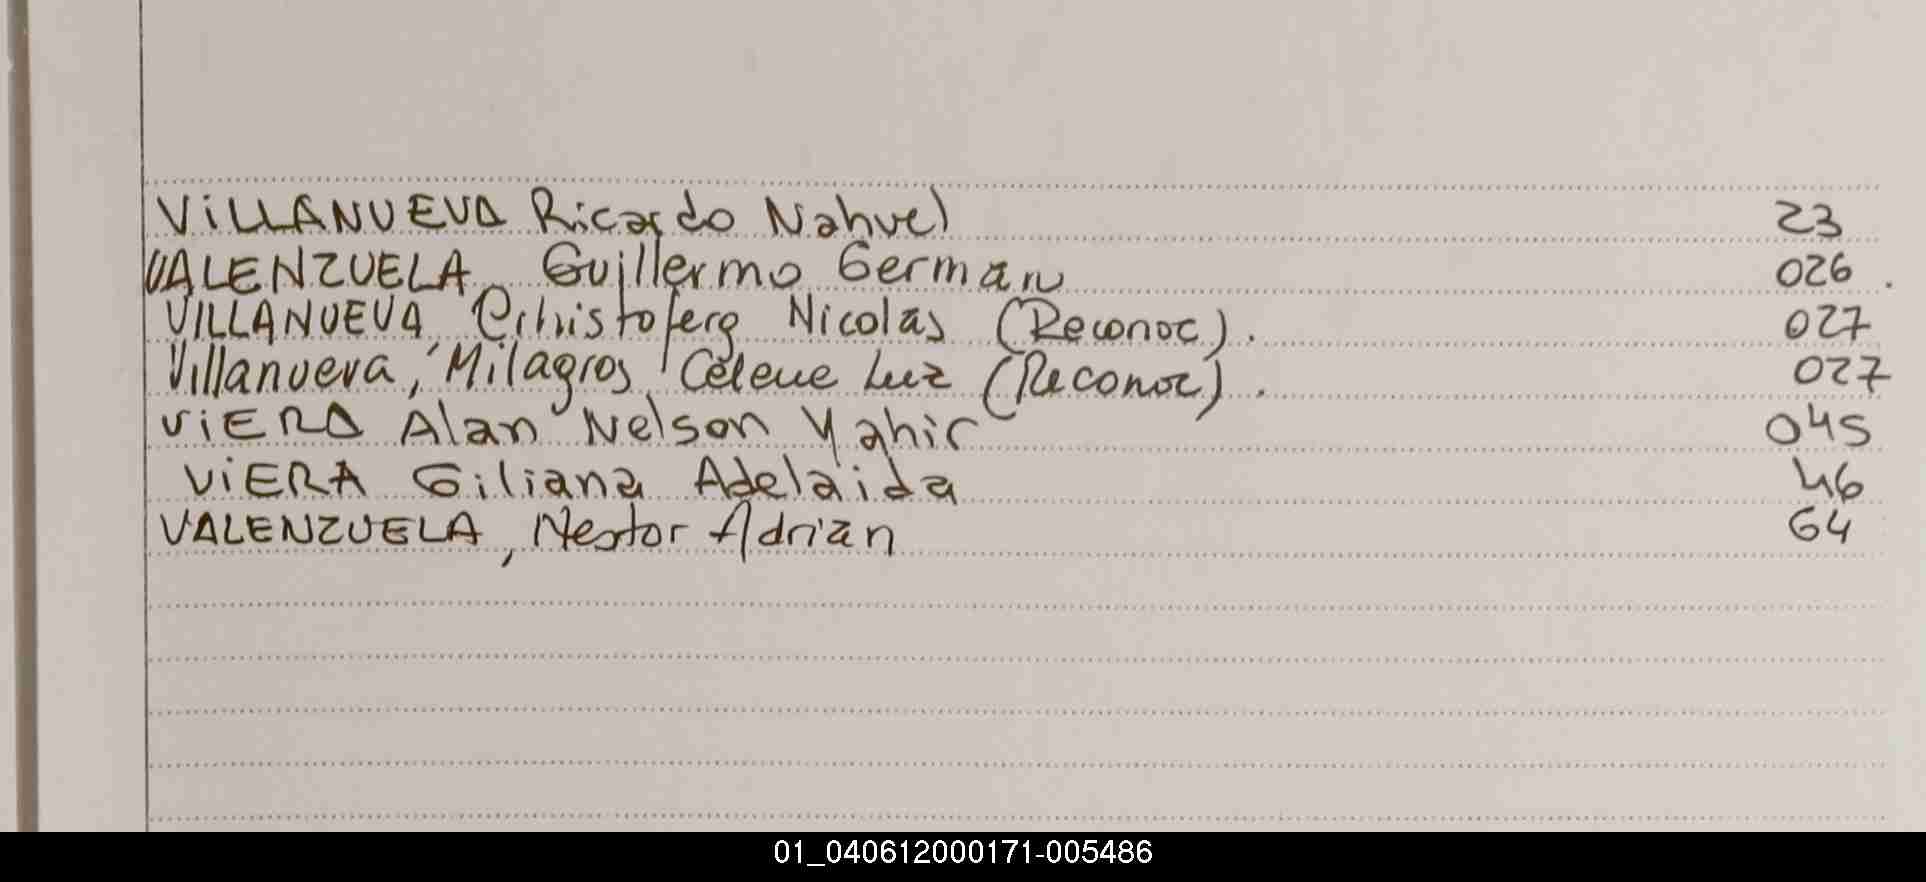 VILLANUEVA Ricardo Nahuel 23
VALENZUELA, Guillermo German 026.
VILLANUEVA, Nicolas (Reconoc). 027
Villanueva, Milagros Celene Luz (Reconoc). 027
VIERA Alan Nelson Yahir 045
VIERA Giliana Adelaida 46
VALENZUELA, Nestor Adrian 64
01_040612000171-005486